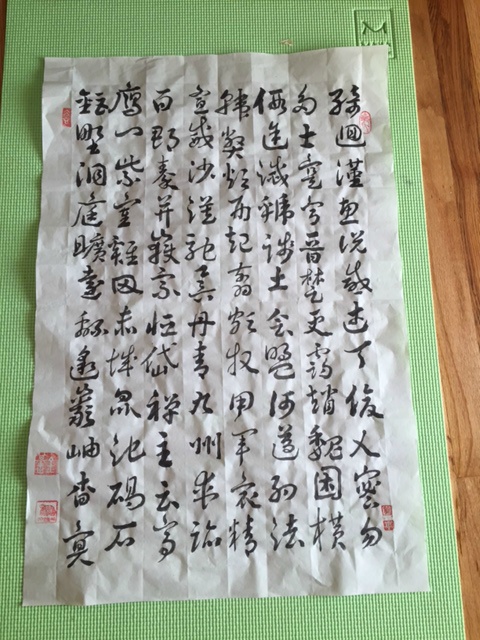 綺迴漢惠說感武丁俊乂密勿
多士寔寧晉楚更霸趙魏困橫
假途滅虢踐土會盟何遵約法
韓弊煩刑起翦頗牧用軍最精
宣威沙漠馳譽丹青九州禹跡
百郡秦并嶽宗恒岱禪主云亭
雁門紫塞雞田赤城昆池碣石
鉅野洞庭曠遠綿邈巖岫杳冥